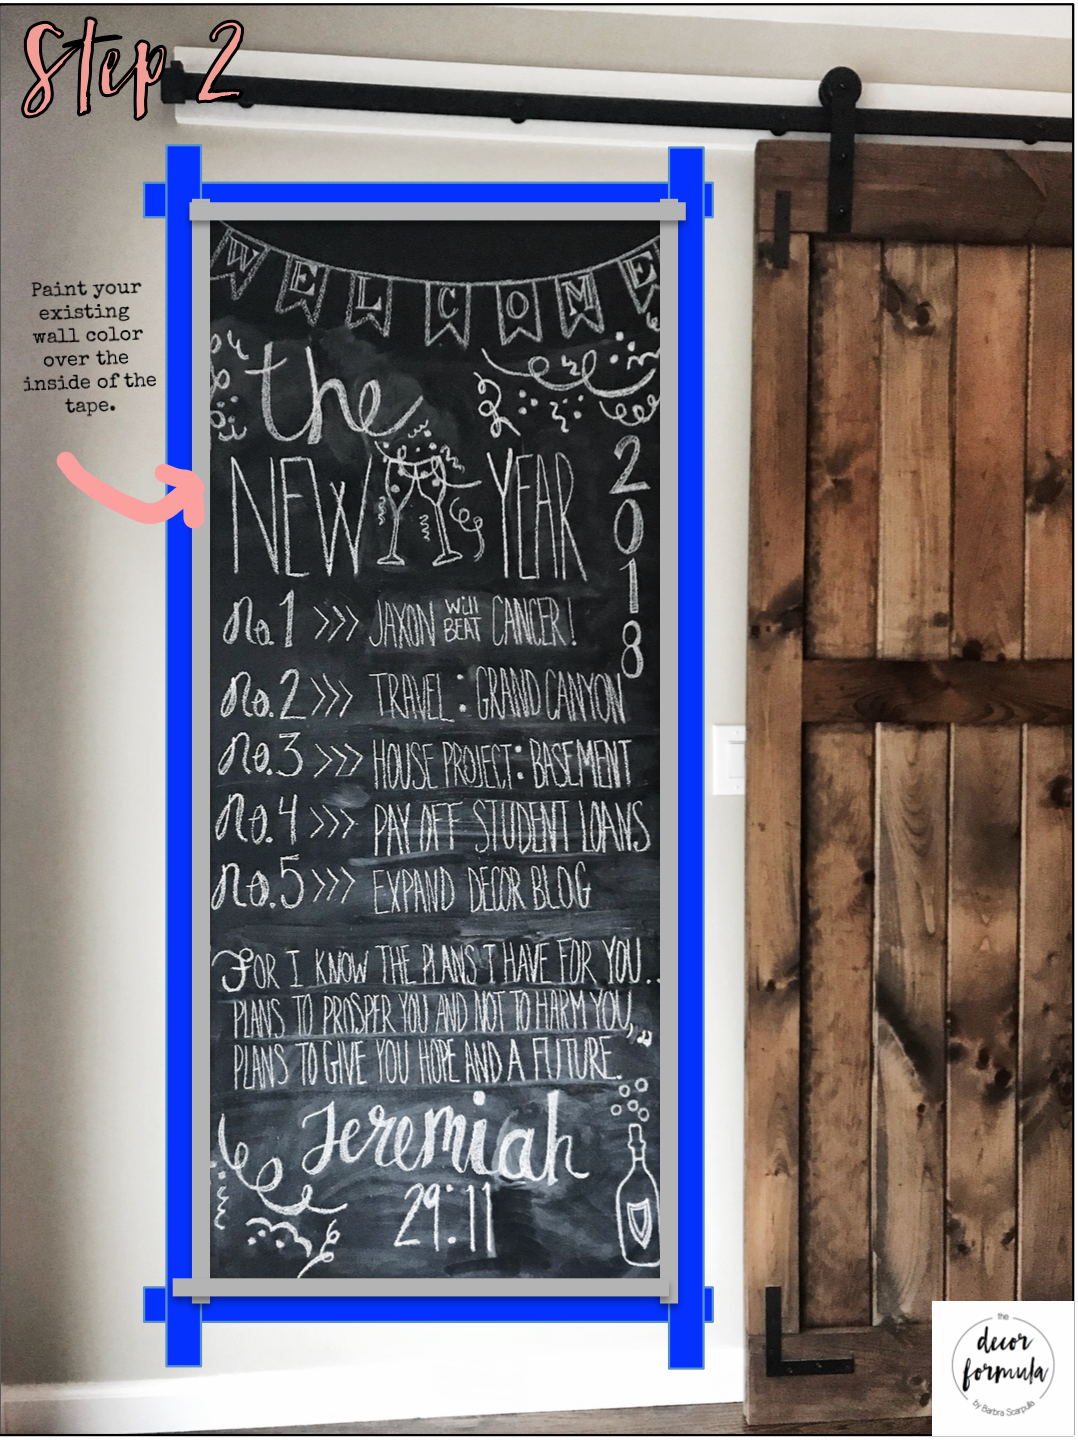 Step 2
Paint your
existing
wall color
over the
inside of the
tape.
WELCOME
the
NEW YEAR
2018
no.1 >>> JAXON will BEAT CANCER!
no.2 >>> TRAVEL: GRAND CANYON
no.3 >>> HOUSE PROJECT: BASEMENT
no.4 >>> PAY OFF STUDENT LOANS
no.5 >>> EXPAND DECOR BLOG
FOR I KNOW THE PLANS I HAVE FOR YOU..
PLANS TO PROSPER YOU AND NOT TO HARM YOU,
PLANS TO GIVE YOU HOPE AND A FUTURE."
Jeremiah
29:11
the
decor
formula
by Barbra Scarpulla